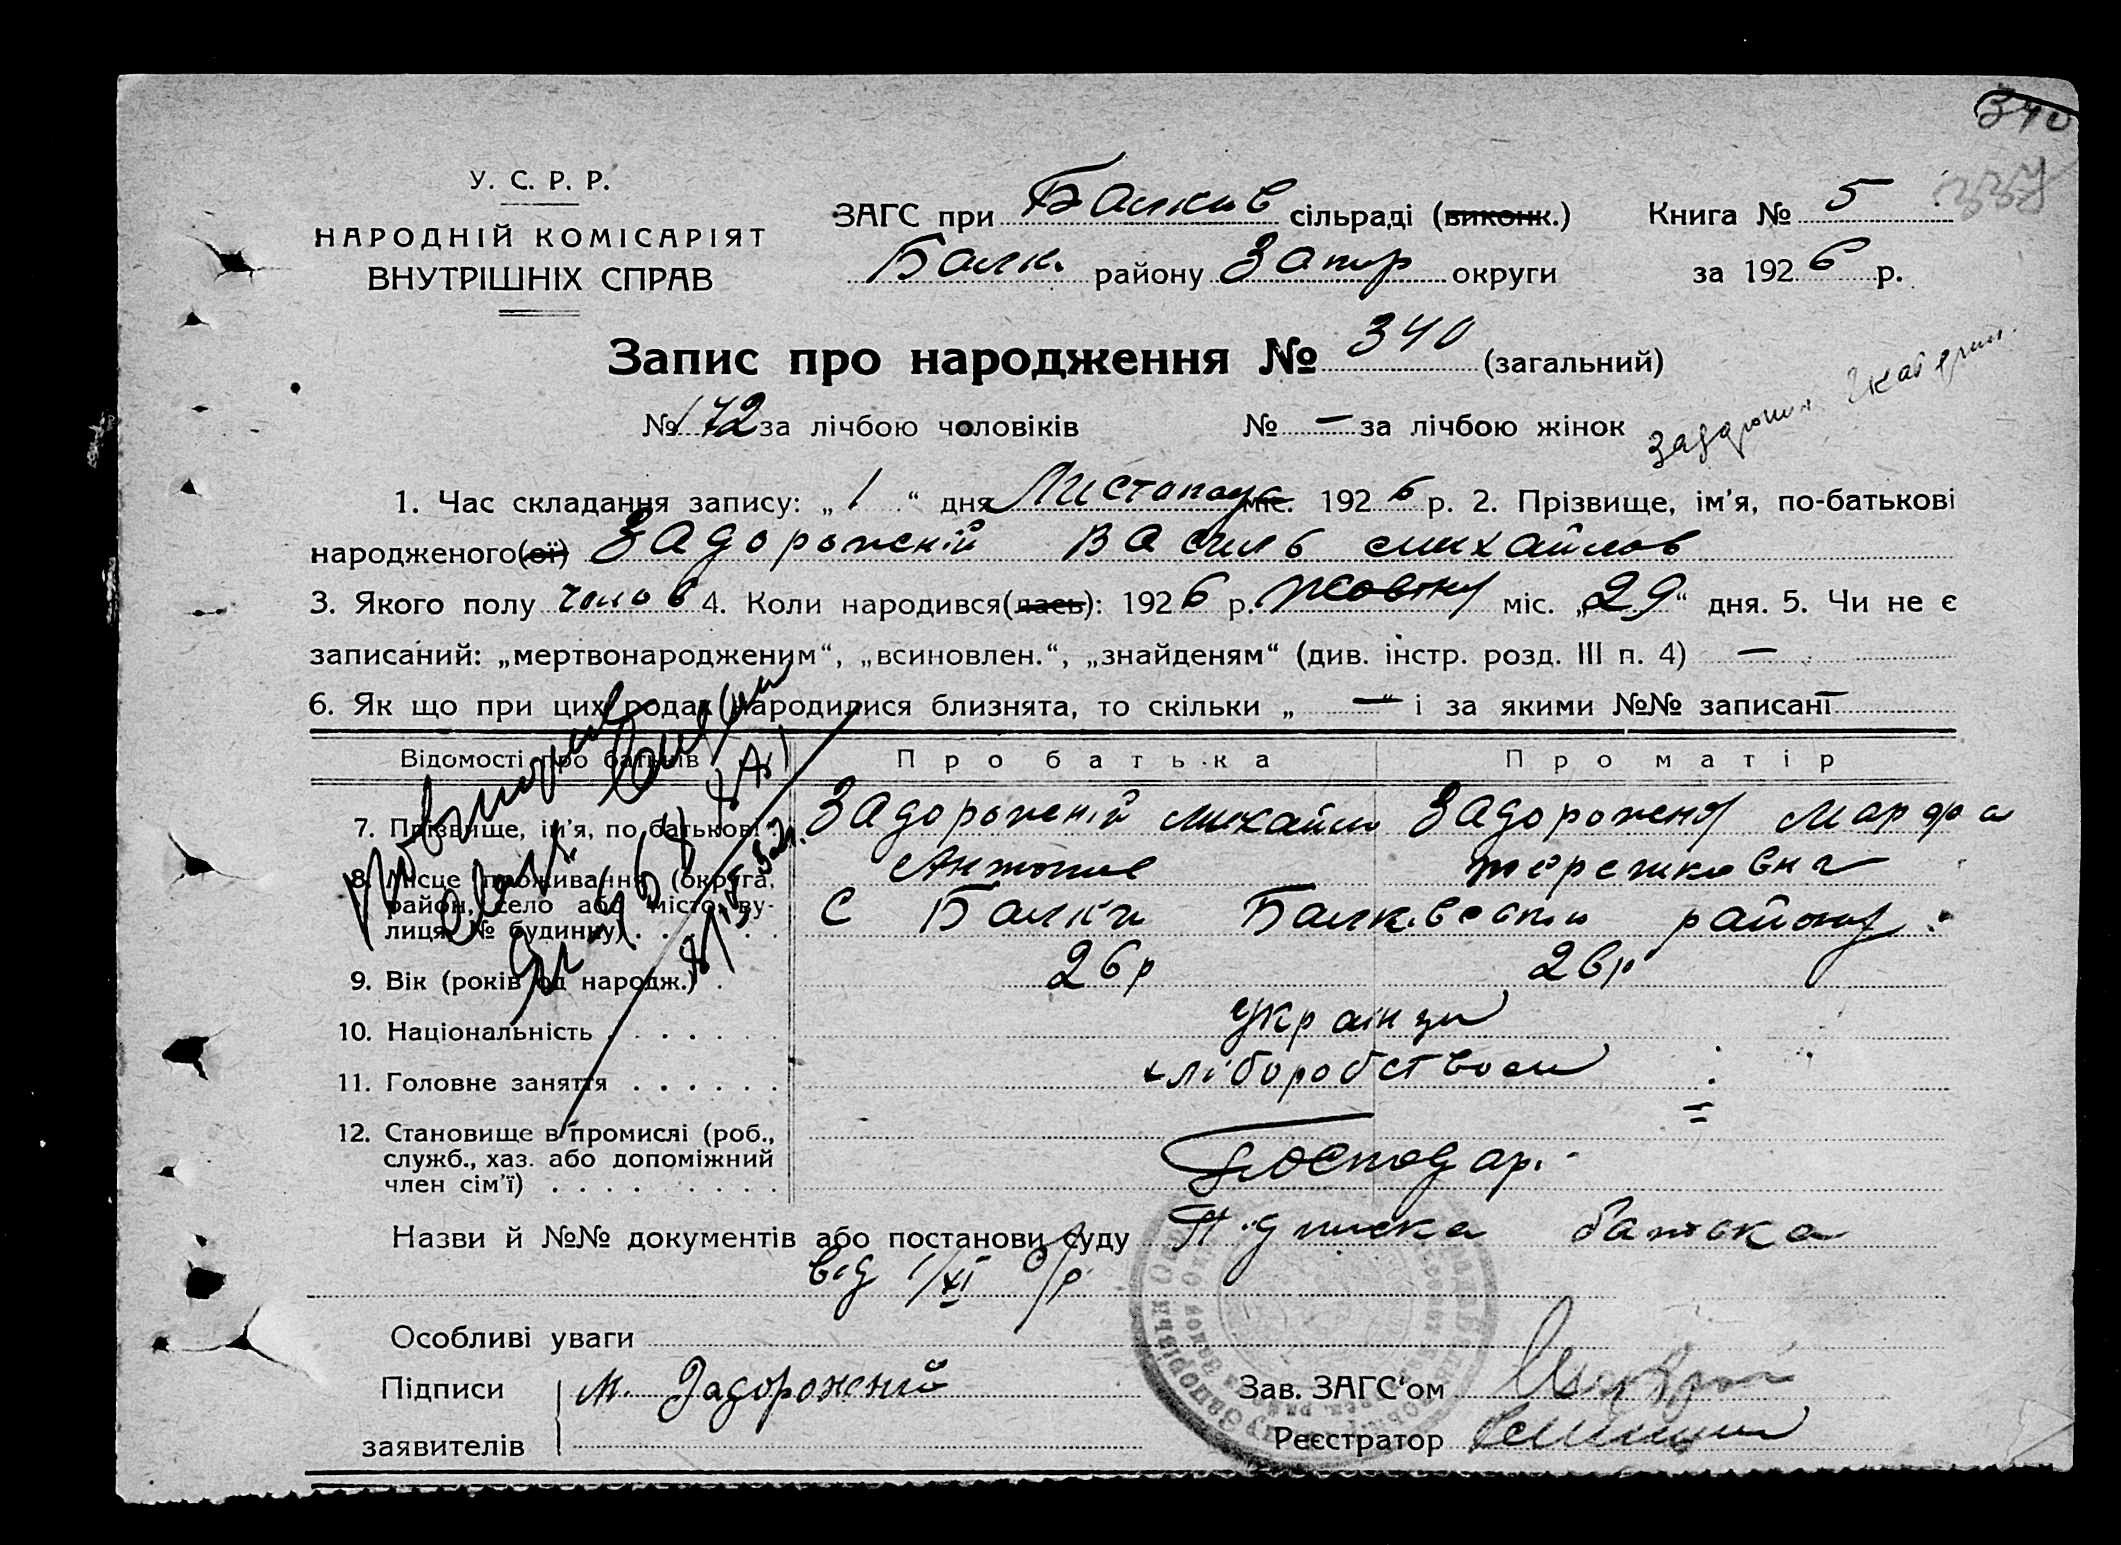 340
337
У. С. Р. Р.
НАРОДНІЙ КОМІСАРІЯТ
ВНУТРІШНІХ СПРАВ
ЗАГС при Балків сільраді (виконк.) Книга № 5
Балк. району Запор округи за 1926 р.
Запис про народження № 340 (загальний)
№ 172 за лічбою чоловіків № — за лічбою жінок
1. Час складання запису: „ 1 “ дня Листопада міс. 1926 р. 2. Прізвище, ім'я, по-батькові
народженого(ої) Задорожній Василь Михайлов
3. Якого полу чолов 4. Коли народився(лась): 1926 р. Жовтня міс. „29“ дня. 5. Чи не є
записаний: „мертвонародженим“, „всиновлен.“, „знайденям“ (див. інстр. розд. III п. 4) —
6. Як що при цих родах народилися близнята, то скільки „ — “ і за якими №№ записані —
Відомості про батьків Про батька Про матір
7. Прізвище, ім'я, по батькові Задорожній Михайло Задорожня Марфа
Антонов Терешковна
8. Місце проживання (округа, район, село або місто, вулиця, № будинку) с Балки Балківского району
9. Вік (років од народж.) 26 р 26 р
10. Національність українци
11. Головне заняття хліборобством
12. Становище в промислі (роб., служб., хаз. або допоміжний член сім'ї) Господар.
Назви й №№ документів або постанови суду Підписка батька
від 1/XI 6/р
Особливі уваги
Підписи М. Задорожній Зав. ЗАГС'ом
заявителів Реєстратор